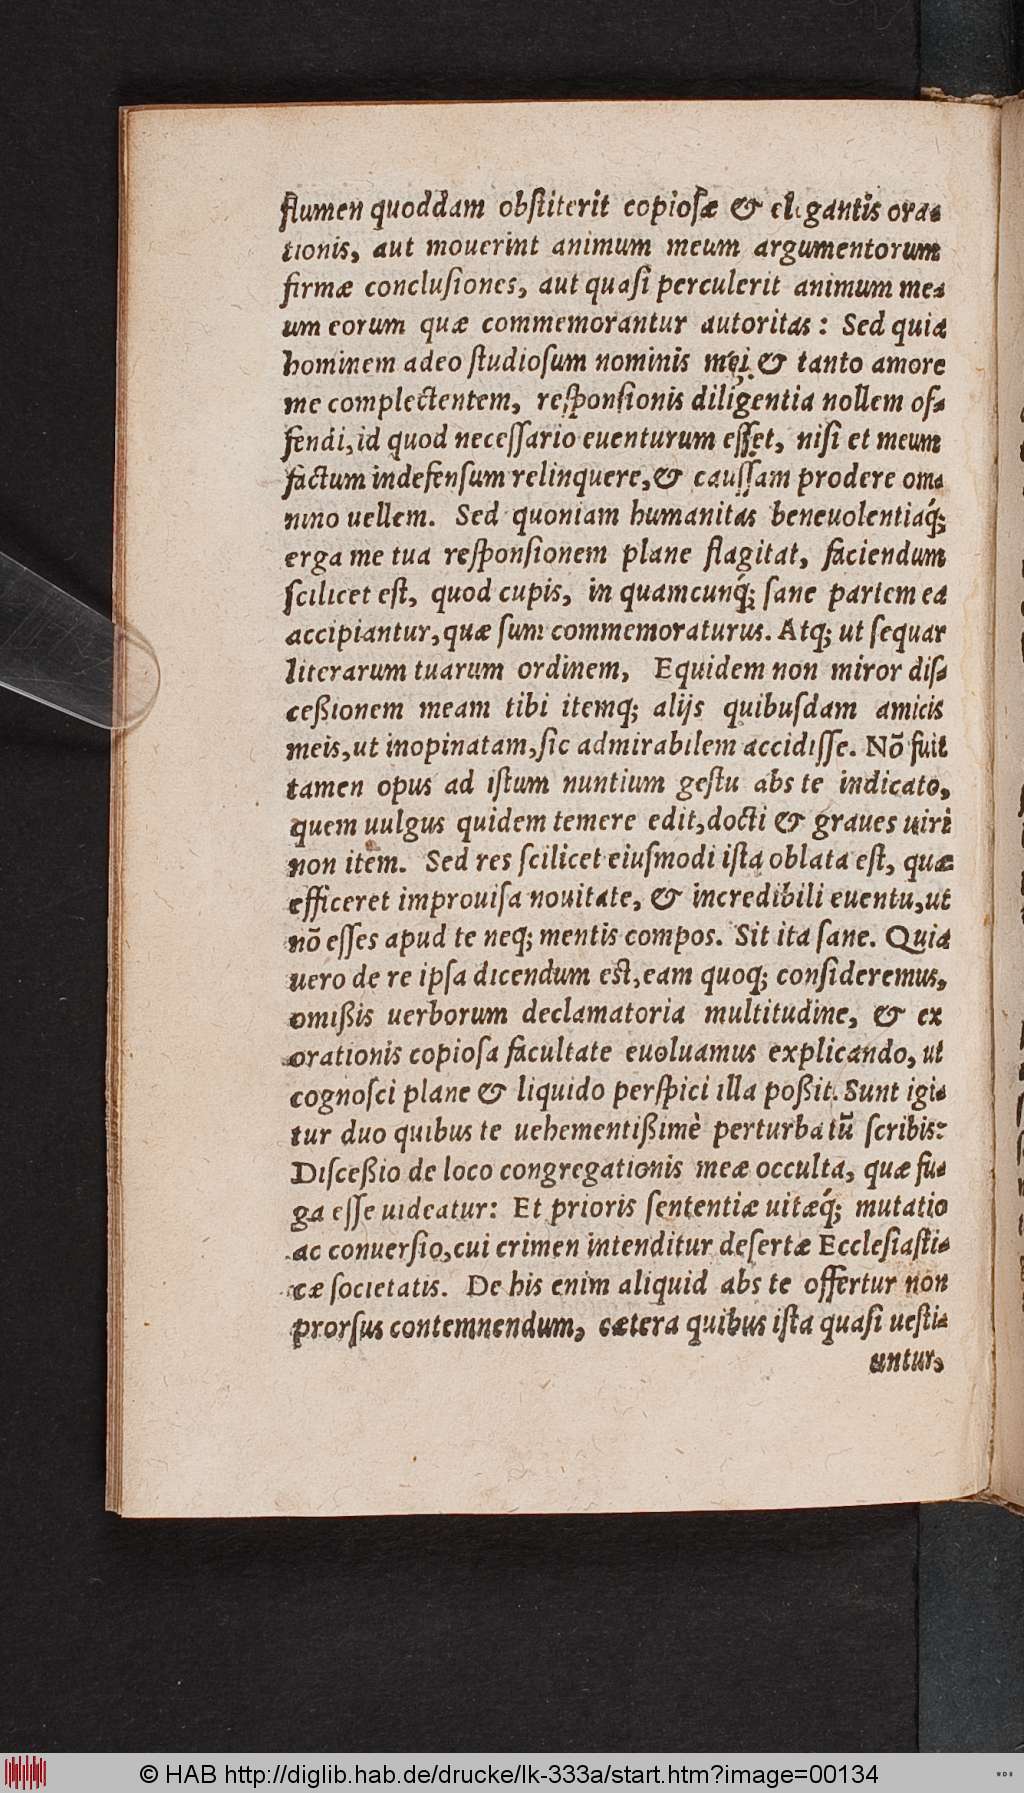 flumen quoddam obſtiterit copioſæ & elegantis ora-
tionis, aut mouerint animum meum argumentorum
firmæ concluſiones, aut quaſi perculerit animum me-
um eorum quæ commemorantur autoritas: Sed quia
hominem adeo ſtudioſum nominis mei & tanto amore
me complectentem, reſponſionis diligentia nollem of-
fendi, id quod neceſſario euenturum eſſet, niſi et meum
factum indefenſum relinquere, & cauſſam prodere om-
nino uellem. Sed quoniam humanitas beneuolentiaq́;
erga me tua reſponſionem plane flagitat, faciendum
ſcilicet eſt, quod cupis, in quamcunq́; ſane partem ea
accipiantur, quæ ſum commemoraturus. Atq; ut ſequar
literarum tuarum ordinem, Equidem non miror diſ-
ceßionem meam tibi itemq; alijs quibuſdam amicis
meis, ut inopinatam, ſic admirabilem accidiſſe. Nõ fuit
tamen opus ad iſtum nuntium geſtu abs te indicato,
quem uulgus quidem temere edit, docti & graues uiri
non item. Sed res ſcilicet eiuſmodi iſta oblata eſt, quæ
efficeret improuiſa nouitate, & incredibili euentu, ut
nõ eſſes apud te neq; mentis compos. Sit ita ſane. Quia
uero de re ipſa dicendum eſt, eam quoq; conſideremus,
omißis uerborum declamatoria multitudine, & ex
orationis copioſa facultate euoluamus explicando, ut
cognoſci plane & liquido perſpici illa poßit. Sunt igi-
tur duo quibus te uehementißimè perturbatũ ſcribis:
Diſceßio de loco congregationis meæ occulta, quæ fu-
ga eſſe uideatur: Et prioris ſententiæ uitæq́; mutatio
ac conuerſio, cui crimen intenditur deſertæ Eccleſiaſti-
cæ ſocietatis. De his enim aliquid abs te offertur non
prorſus contemnendum, cætera quibus iſta quaſi ueſti-
untur,
© HAB http://diglib.hab.de/drucke/lk-333a/start.htm?image=00134